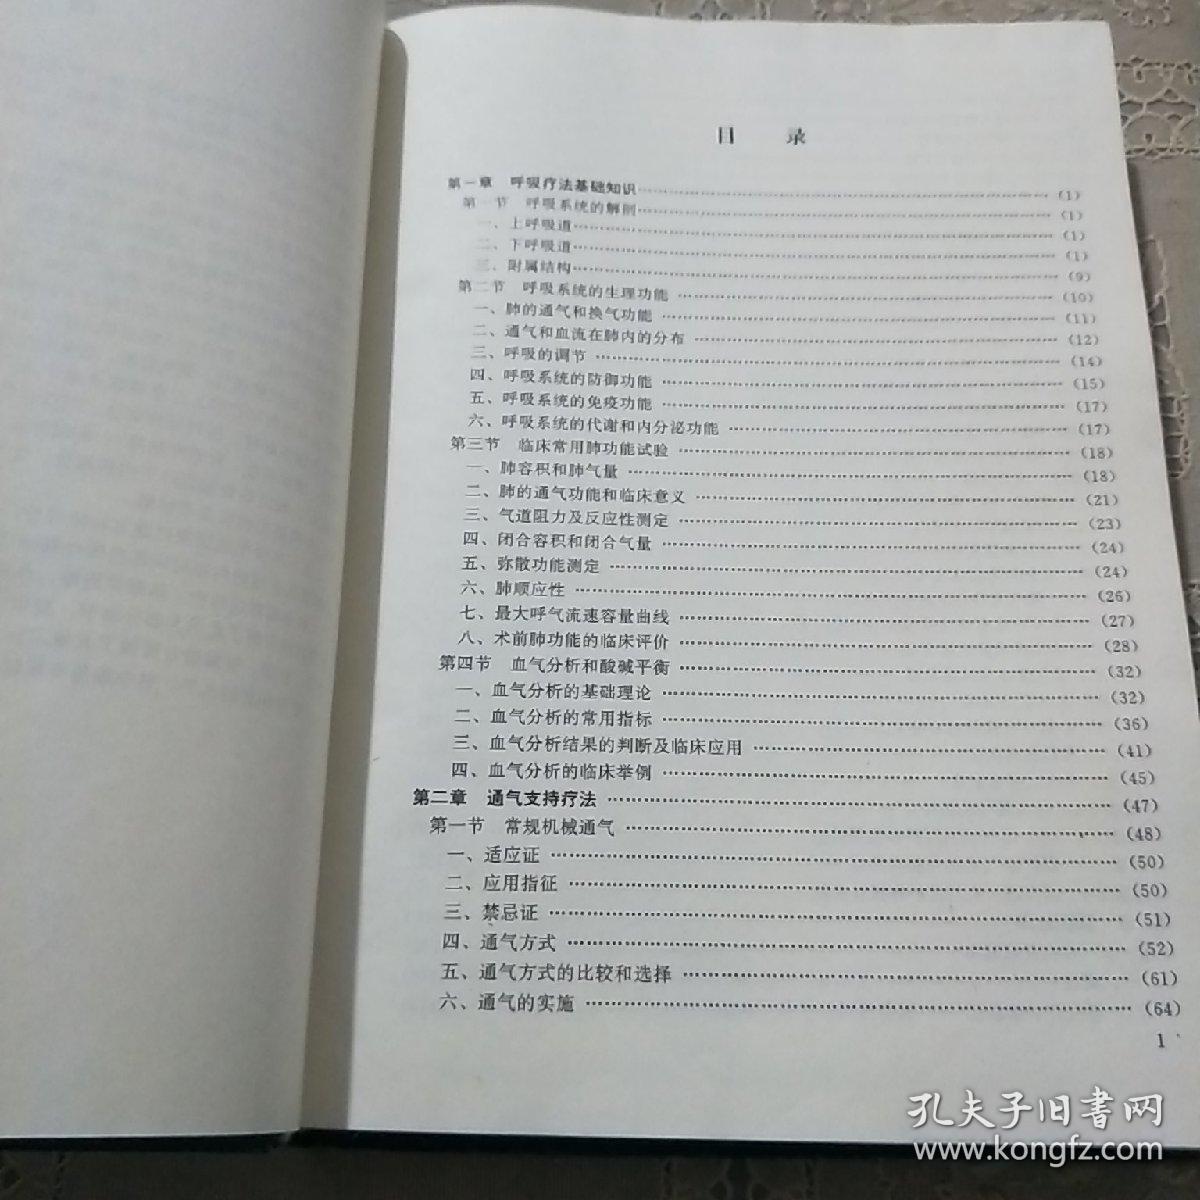 目　录
第一章　呼吸疗法基础知识……（1）
第一节　呼吸系统的解剖……（1）
一、上呼吸道……（1）
二、下呼吸道……（1）
三、附属结构……（9）
第二节　呼吸系统的生理功能……（10）
一、肺的通气和换气功能……（11）
二、通气和血流在肺内的分布……（12）
三、呼吸的调节……（14）
四、呼吸系统的防御功能……（15）
五、呼吸系统的免疫功能……（17）
六、呼吸系统的代谢和内分泌功能……（17）
第三节　临床常用肺功能试验……（18）
一、肺容积和肺气量……（18）
二、肺的通气功能和临床意义……（21）
三、气道阻力及反应性测定……（23）
四、闭合容积和闭合气量……（24）
五、弥散功能测定……（24）
六、肺顺应性……（26）
七、最大呼气流速容量曲线……（27）
八、术前肺功能的临床评价……（28）
第四节　血气分析和酸碱平衡……（32）
一、血气分析的基础理论……（32）
二、血气分析的常用指标……（36）
三、血气分析结果的判断及临床应用……（41）
四、血气分析的临床举例……（45）
第二章　通气支持疗法……（47）
第一节　常规机械通气……（48）
一、适应证……（50）
二、应用指征……（50）
三、禁忌证……（51）
四、通气方式……（52）
五、通气方式的比较和选择……（61）
六、通气的实施……（64）
1
孔夫子旧书网
www.kongfz.com